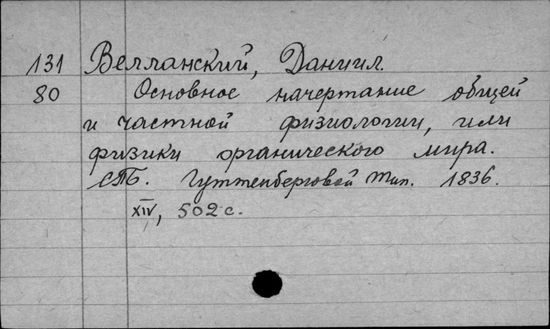 131 Велланский, Даниил.
80 Основное начертание общей
и частной физиологии, или
физики органического мира.
СПБ. Гуттенберговой тип. 1836.
XIV, 502 с.